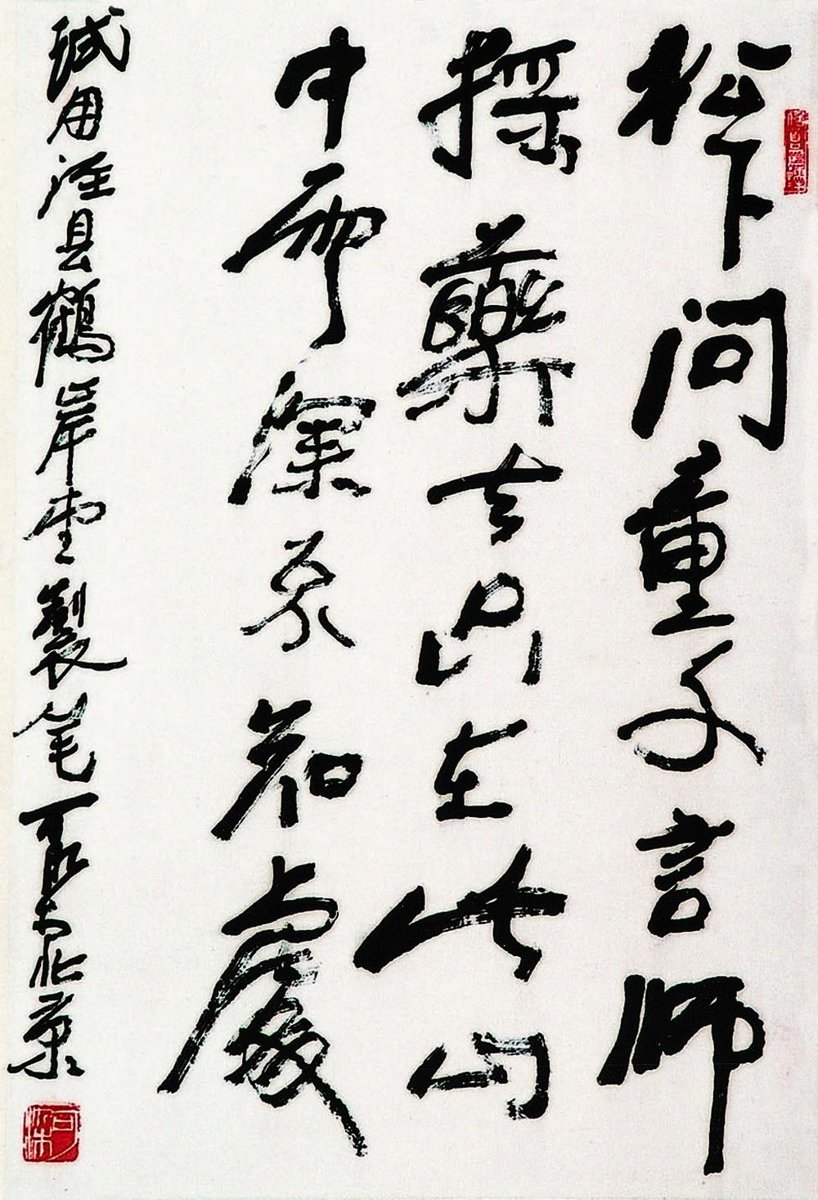 松下问童子言师
採藥去只在此山
中雲深不知處
試用泾县鶴岸堂製笔 可染于北京
可染